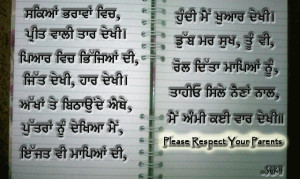 ਸਕਿਆਂ ਭਰਾਵਾਂ ਵਿਚ,
ਪ੍ਰੀਤ ਵਾਲੀ ਤਾਰ ਦੇਖੀ।
ਪਿਆਰ ਵਿਚ ਭਿੱਜਿਆਂ ਦੀ,
ਜਿੱਤ ਦੇਖੀ, ਹਾਰ ਦੇਖੀ।
ਅੱਖਾਂ ਤੇ ਬਿਠਾਉਂਦੇ ਐਥੇ,
ਪੁੱਤਰਾਂ ਨੂੰ ਦੇਖਿਆ ਮੈਂ,
ਇੱਜਤ ਵੀ ਮਾਪਿਆਂ ਦੀ,
ਹੁੰਦੀ ਮੈਂ ਖੁਆਰ ਦੇਖੀ।
ਡੁੱਬ ਮਰ ਸੁਖ, ਤੂੰ ਵੀ,
ਰੋਲ ਦਿੱਤਾ ਮਾਪਿਆਂ ਨੂੰ,
ਤਾਹੀਓ ਸਿਲੇ ਨੈਣਾਂ ਨਾਲ,
ਮੈਂ ਅੰਮੀ ਕਈ ਵਾਰ ਦੇਖੀ॥
Please Respect Your Parents